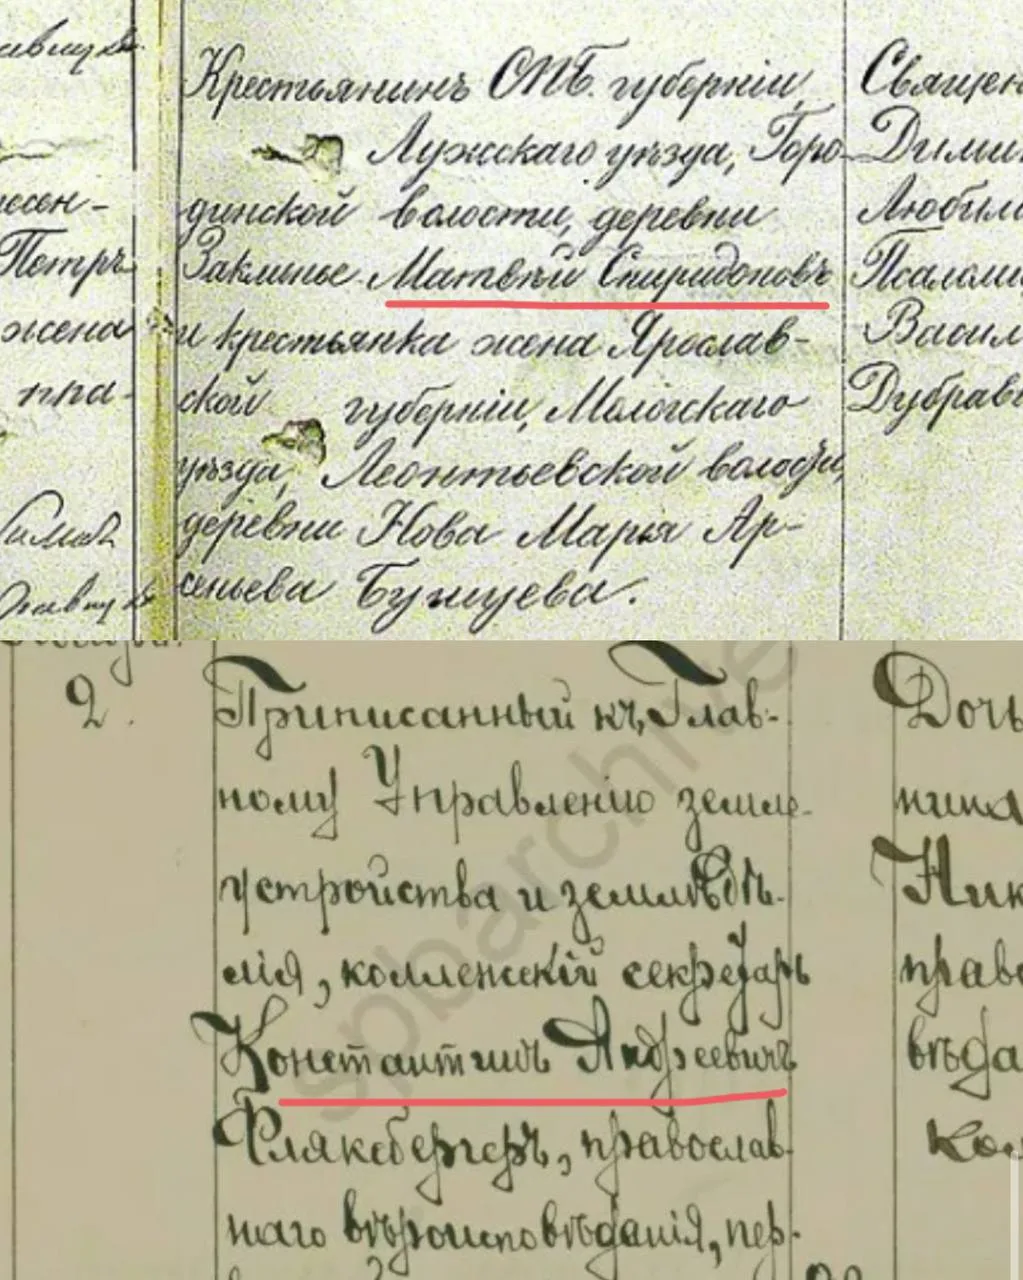 Крестьянинъ СПБ. губернiи,
Лужскаго уѣзда, Горо-
динской волости, деревни
Заклинье Матвѣй Спиридоновъ
и крестьянка жена Ярослав-
ской губернiи, Мологскаго
уѣзда, Леонтьевской волости,
деревни Нова Марья Ар-
сеньева
Священ
Дими
Любим
Псалом
Васил
Дубрав
есен-
Петръ
жена
2.
Приписанный къ Глав-
ному Управленiю земле-
устройства и земледѣ-
лiя, коллежскiй секретарь
Константинъ Андреевичъ
Фляксбергеръ, православ-
наго вѣроисповѣданiя, пер-
Дочь
Ник
право
вѣда
spbarchive